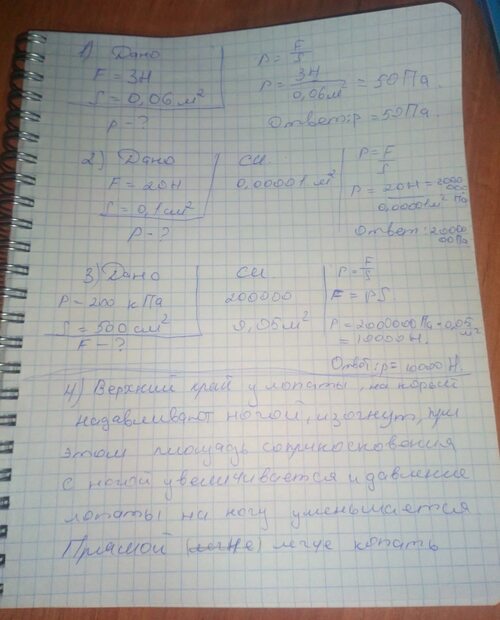 1) Дано
F = 3Н
S = 0,06 м²
p - ?
P = F/S
P = 3Н/0,06м² = 50 Па.
Ответ: p = 50 Па.
2) Дано
F = 20Н
S = 0,1 см²
P - ?
СИ
0,00001 м²
P = F/S
P = 20Н/0,00001м² = 2000 000 Па
Ответ: 20000 00 Па
3) Дано
P = 200 кПа
S = 500 см²
F - ?
СИ
200000
0,05 м²
P = F/S
F = PS
P = 2000000 Па * 0,05 м²
= 10000 Н.
Ответ: p = 10000 Н.
4) Верхний край у лопаты, на корый
надавливают ногой, изогнут, при
этом площадь соприкосновения
с ногой увеличивается и давление
лопаты на ногу уменьшается
Прламой легче копать